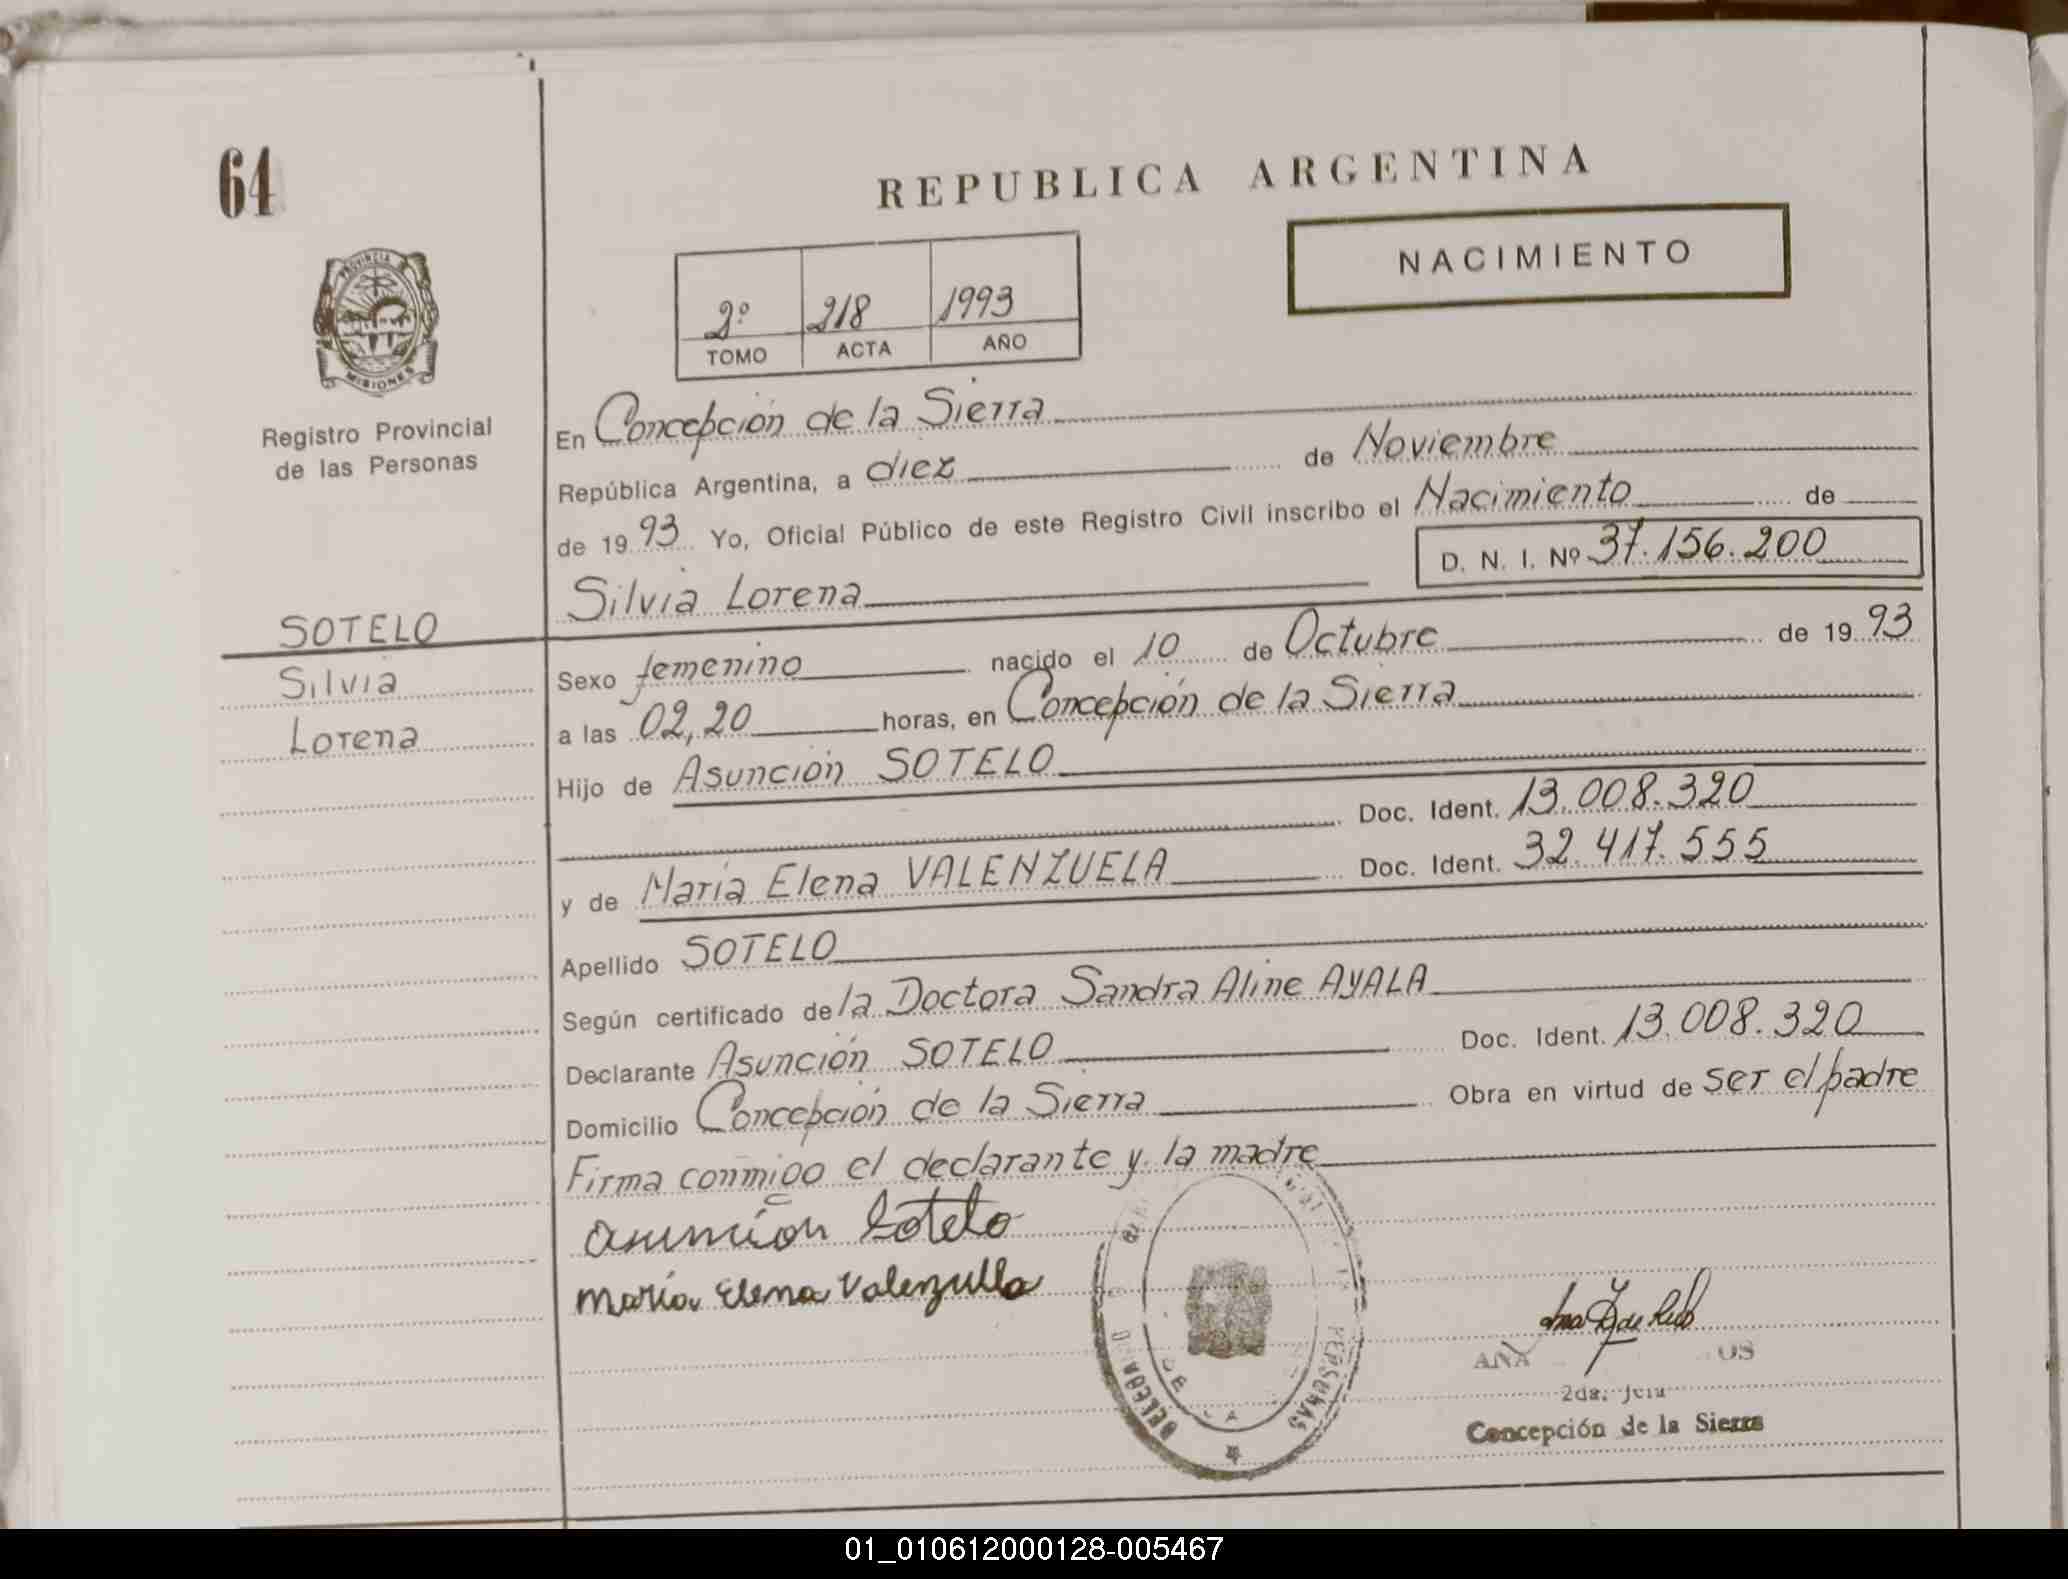 64
REPUBLICA ARGENTINA
NACIMIENTO
PROVINCIA DE
MISIONES
Registro Provincial
de las Personas
2º 218 1993
TOMO ACTA AÑO
En Concepción de la Sierra
República Argentina, a diez de Noviembre
de 1993 Yo, Oficial Público de este Registro Civil inscribo el Nacimiento de
D. N. I. Nº 37.156.200
Silvia Lorena
SOTELO
Silvia
Lorena
Sexo femenino nacido el 10 de Octubre de 1993
a las 02,20 horas, en Concepción de la Sierra
Hijo de Asunción SOTELO
Doc. Ident. 13.008.320
y de María Elena VALENZUELA Doc. Ident. 32.417.555
Apellido SOTELO
Según certificado de la Doctora Sandra Aline AYALA
Declarante Asunción SOTELO Doc. Ident. 13.008.320
Domicilio Concepción de la Sierra Obra en virtud de ser el padre
Firma conmigo el declarante y la madre
Asunción Sotelo
María Elena Valenzuela
DE LA
PERSONAS
ANA
2da.
Concepción de la Sierra
01_010612000128-005467